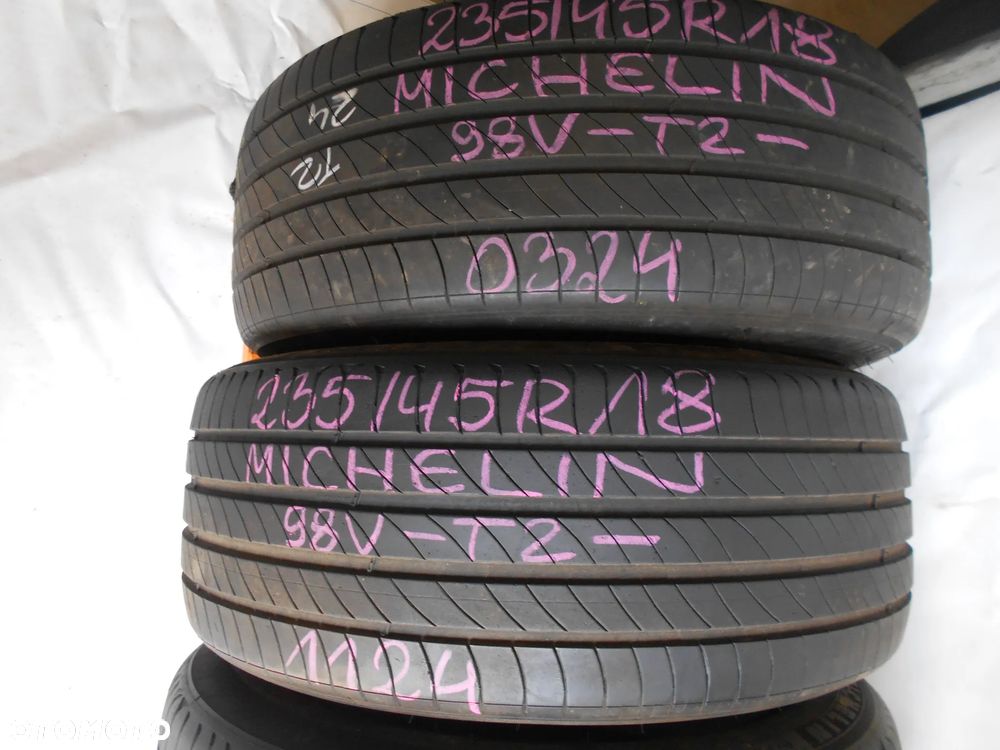 235/45R/18
MICHELIN
98V-T2-
24
T2
0324
235/45R/18
MICHELIN
98V-T2-
1124
OTOMOTO